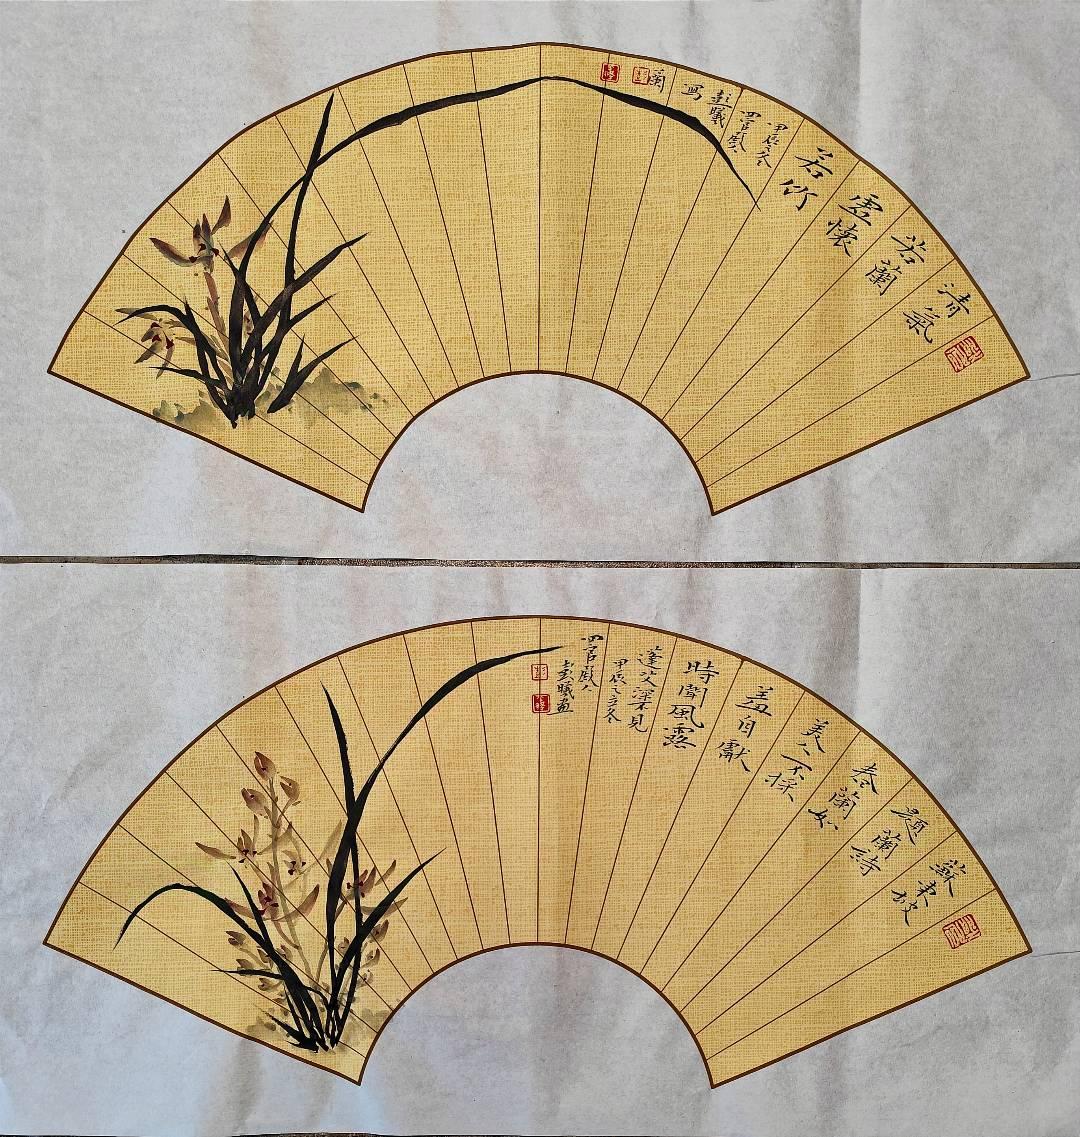 清氣
若蘭
虛懷
若竹
甲辰之冬
四官殿人
彭曦
寫
蘭
蘇東坡
題蘭詩
春蘭如
美人不採
羞自獻
時聞風露
蓬艾深不見
甲辰之冬
四官殿人
彭曦画